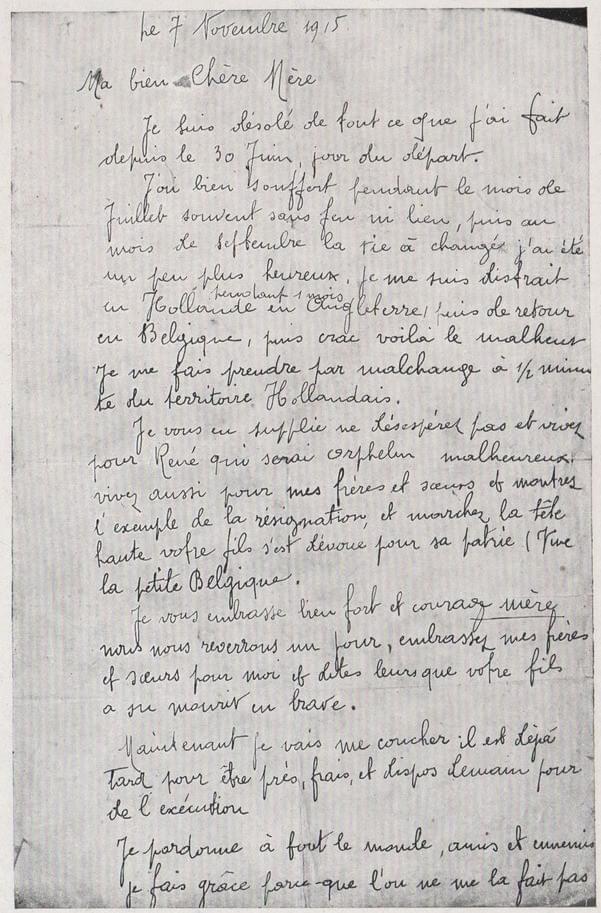 Le 7 Novembre 1915.
Ma bien Chère Mère
Je suis désolé de tout ce que j'ai fait
depuis le 30 Juin, jour du départ.
J'ai bien souffert pendant le mois de
Juillet souvent sans feu ni lieu, puis au
mois de Septembre la vie à changée j'ai été
un peu plus heureux. Je me suis distrait
pendant 1 mois
en Hollande en Angleterre, puis de retour
en Belgique, puis crac voilà le malheur
Je me fais prendre par malchange à 1/2 minu
te du territoire Hollandais.
Je vous en supplie ne désespérez pas et vivez
pour René qui serai orphelin malheureux.
vivez aussi pour mes frères et sœurs et montrez
l'exemple de la résignation et marchez la tête
haute votre fils s'est dévoué pour sa patrie (Vive
la petite Belgique.
Je vous embrasse bien fort et courage mère
nous nous reverrons un jour, embrassez mes frères
et sœurs pour moi et dites leurs que votre fils
a su mourir en brave.
Maintenant je vais me coucher il est déjà
tard pour être prés, frais, et dispos demain pour
de l'exécution
Je pardonne à tout le monde, amis et ennemis
je fais grâce parce-que l'on ne me la fait pas